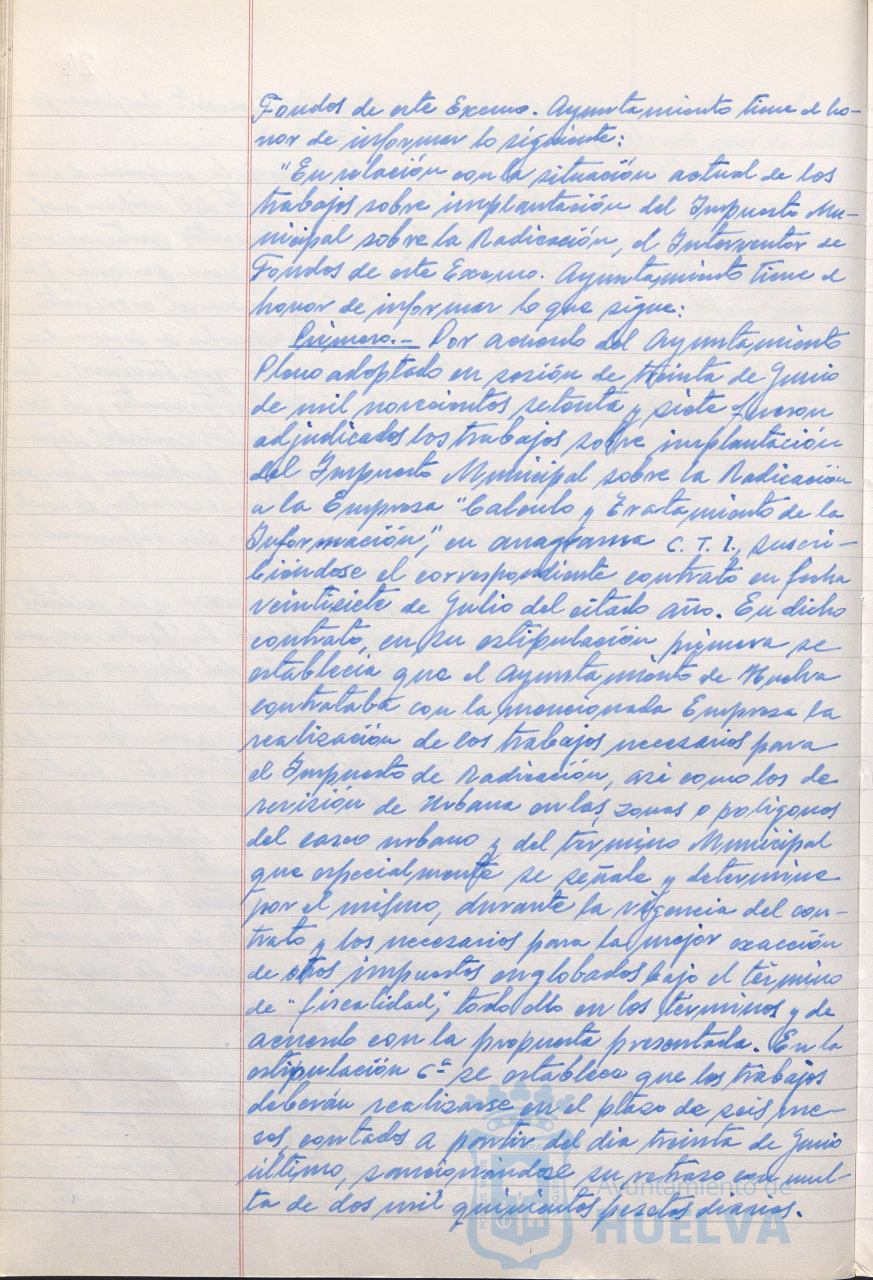 Fondos de este Excmo. Ayuntamiento tiene el ho-
nor de informar lo siguiente:
"En relación con la situación actual de los
trabajos sobre implantación del Impuesto Mu-
nicipal sobre la Radicación, el Interventor de
Fondos de este Excmo. Ayuntamiento tiene el
honor de informar lo que sigue:
Primero.- Por acuerdo del Ayuntamiento
Pleno adoptado en sesión de treinta de Junio
de mil novecientos setenta y siete fueron
adjudicados los trabajos sobre implantación
del Impuesto Municipal sobre la Radicación
a la Empresa "Calculo y Tratamiento de la
Información", en anagrama C.T.I., suscri-
biéndose el correspondiente contrato en fecha
veintisiete de Julio del citado año. En dicho
contrato, en su estipulación primera se
establecía que el Ayuntamiento de Huelva
contrataba con la mencionada Empresa la
realización de los trabajos necesarios para
el Impuesto de Radicación, asi como los de
revisión de Urbana en las zonas o polígonos
del casco urbano y del término Municipal
que especialmente se señale y determine
por el mismo, durante la vigencia del con-
trato y los necesarios para la mejor exacción
de otros impuestos englobados bajo el término
de "fiscalidad", todo ello en los términos y de
acuerdo con la propuesta presentada. En la
estipulación 6ª se establece que los trabajos
deberán realizarse en el plazo de seis me-
ses, contados a partir del dia treinta de Junio
último, sancionándose su retraso con mul-
ta de dos mil quinientas pesetas diarias.
Ayuntamiento de
HUELVA